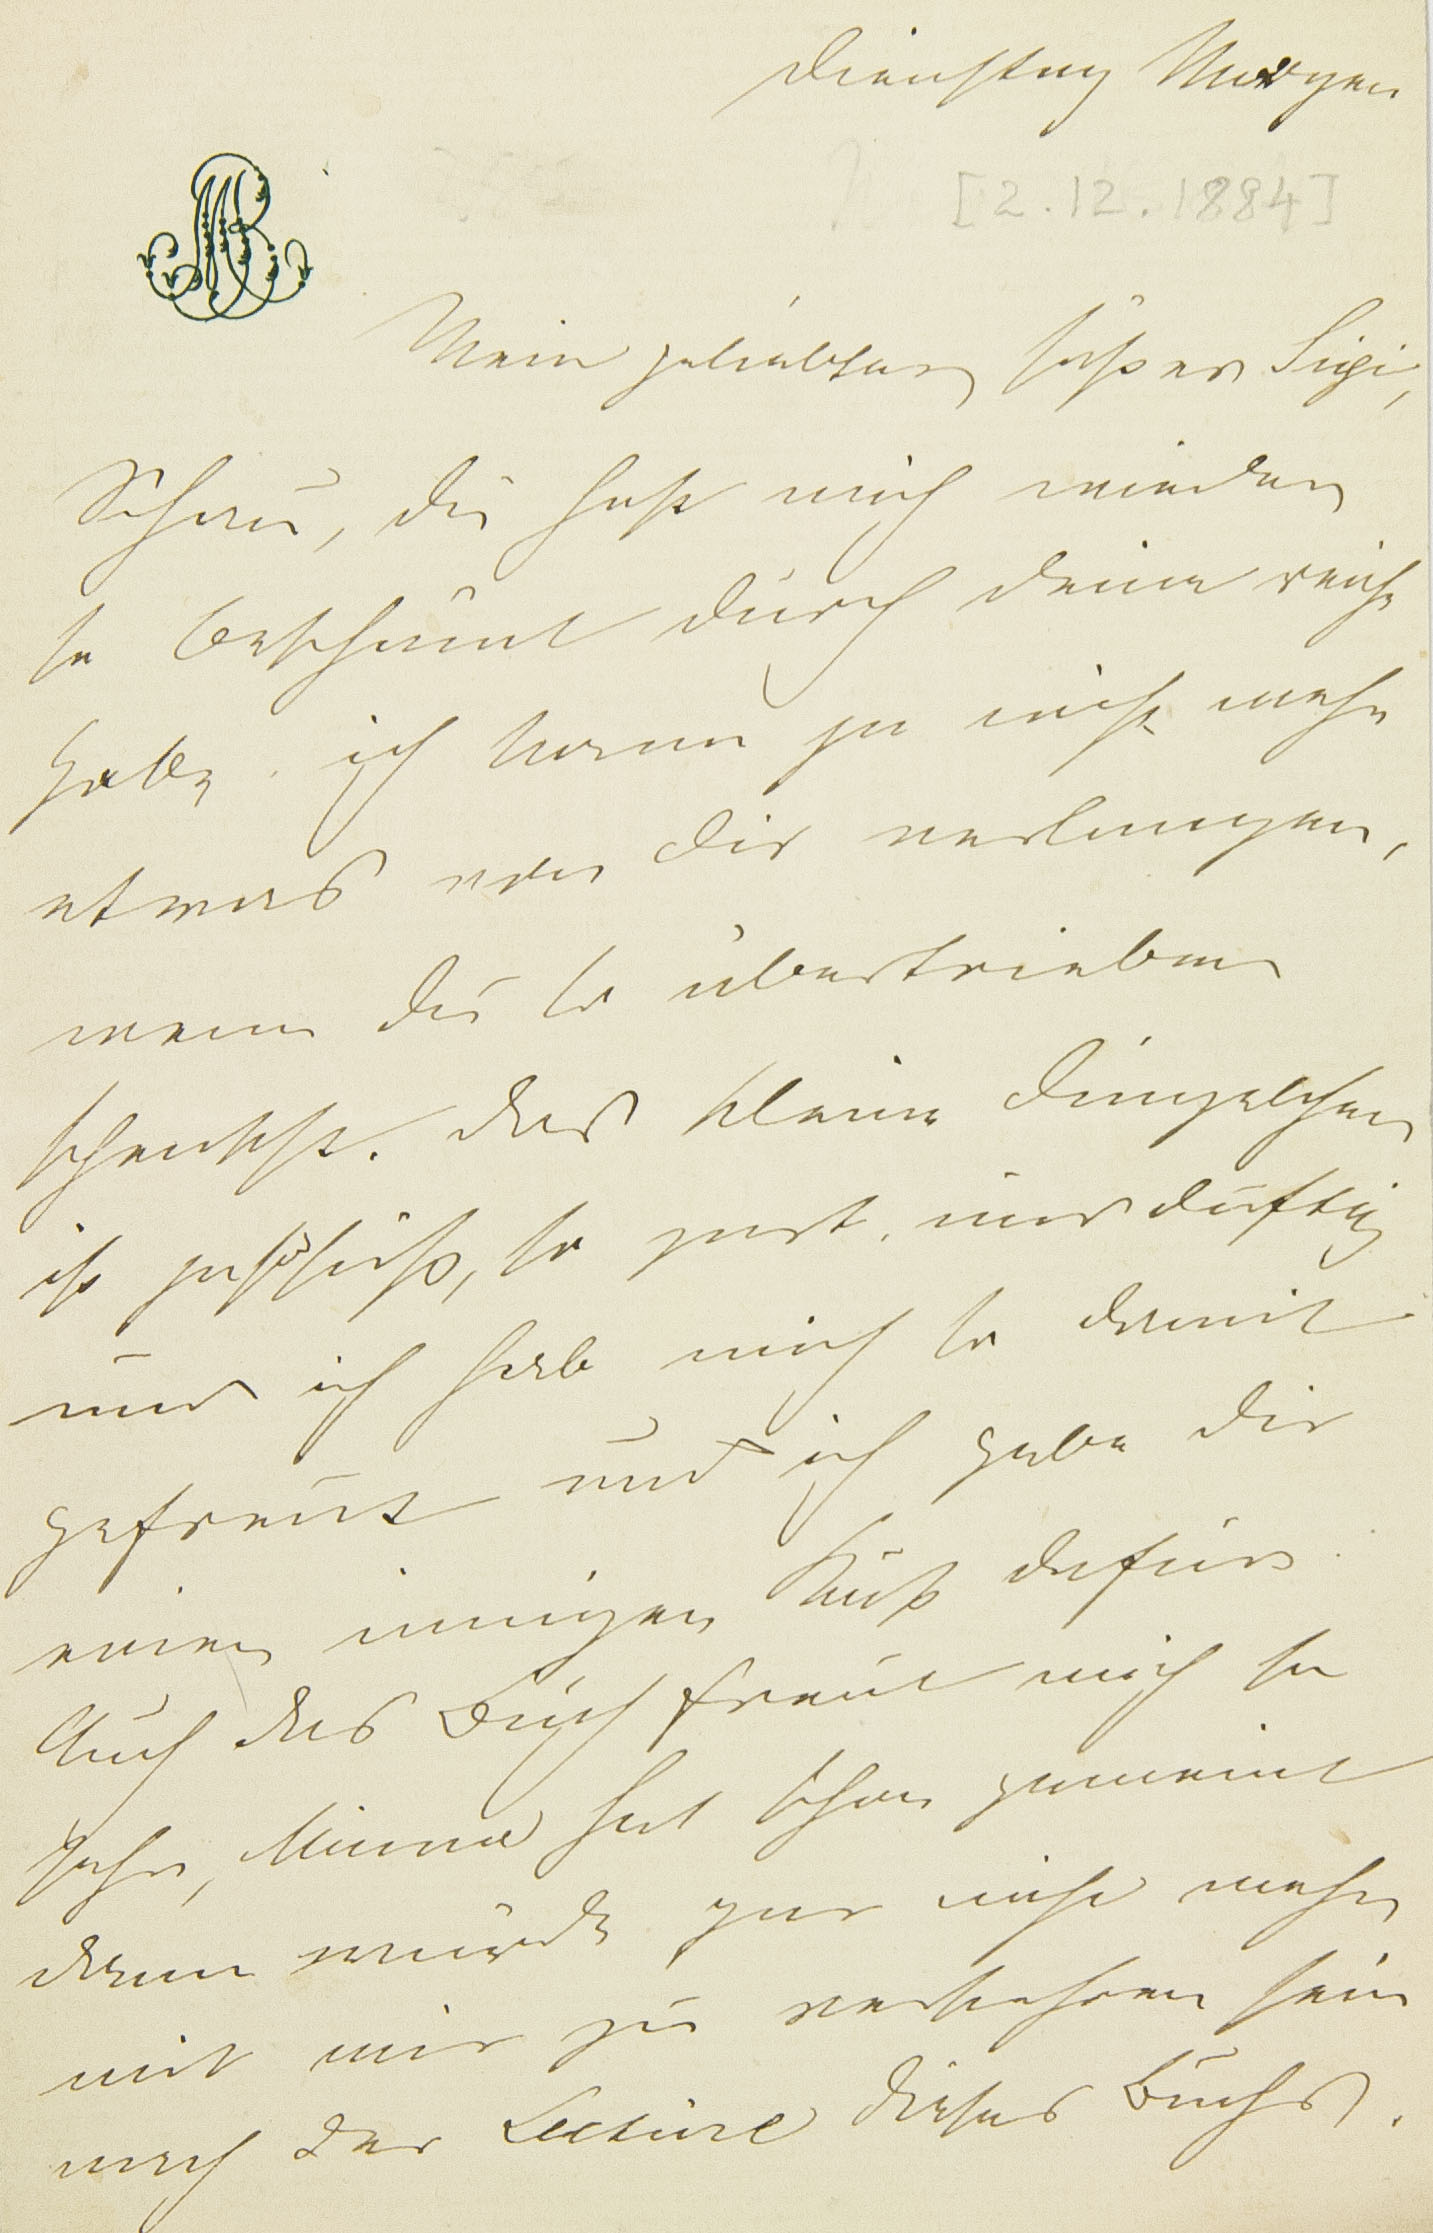 Dienstag Morgen
[2.12.1884]
MB
Mein geliebter süßer Sigi,
Schau, du hast mich wieder
so beschämt durch deine reiche
Gabe. ich kann ja nicht mehr
etwas von dir verlangen,
wenn du so übertrieben
schenkst. Das kleine Dingelchen
ist zu süß, so zart, und duftig
und ich hab mich so damit
gefreut und ich gebe dir
einen innigen Kuß dafür.
Auch das Buch freut mich so
sehr, Minna hat schon gemeint
dann würde gar nicht mehr
mit mir zu verkehren sein
nach der Lectüre dieses Buchs.